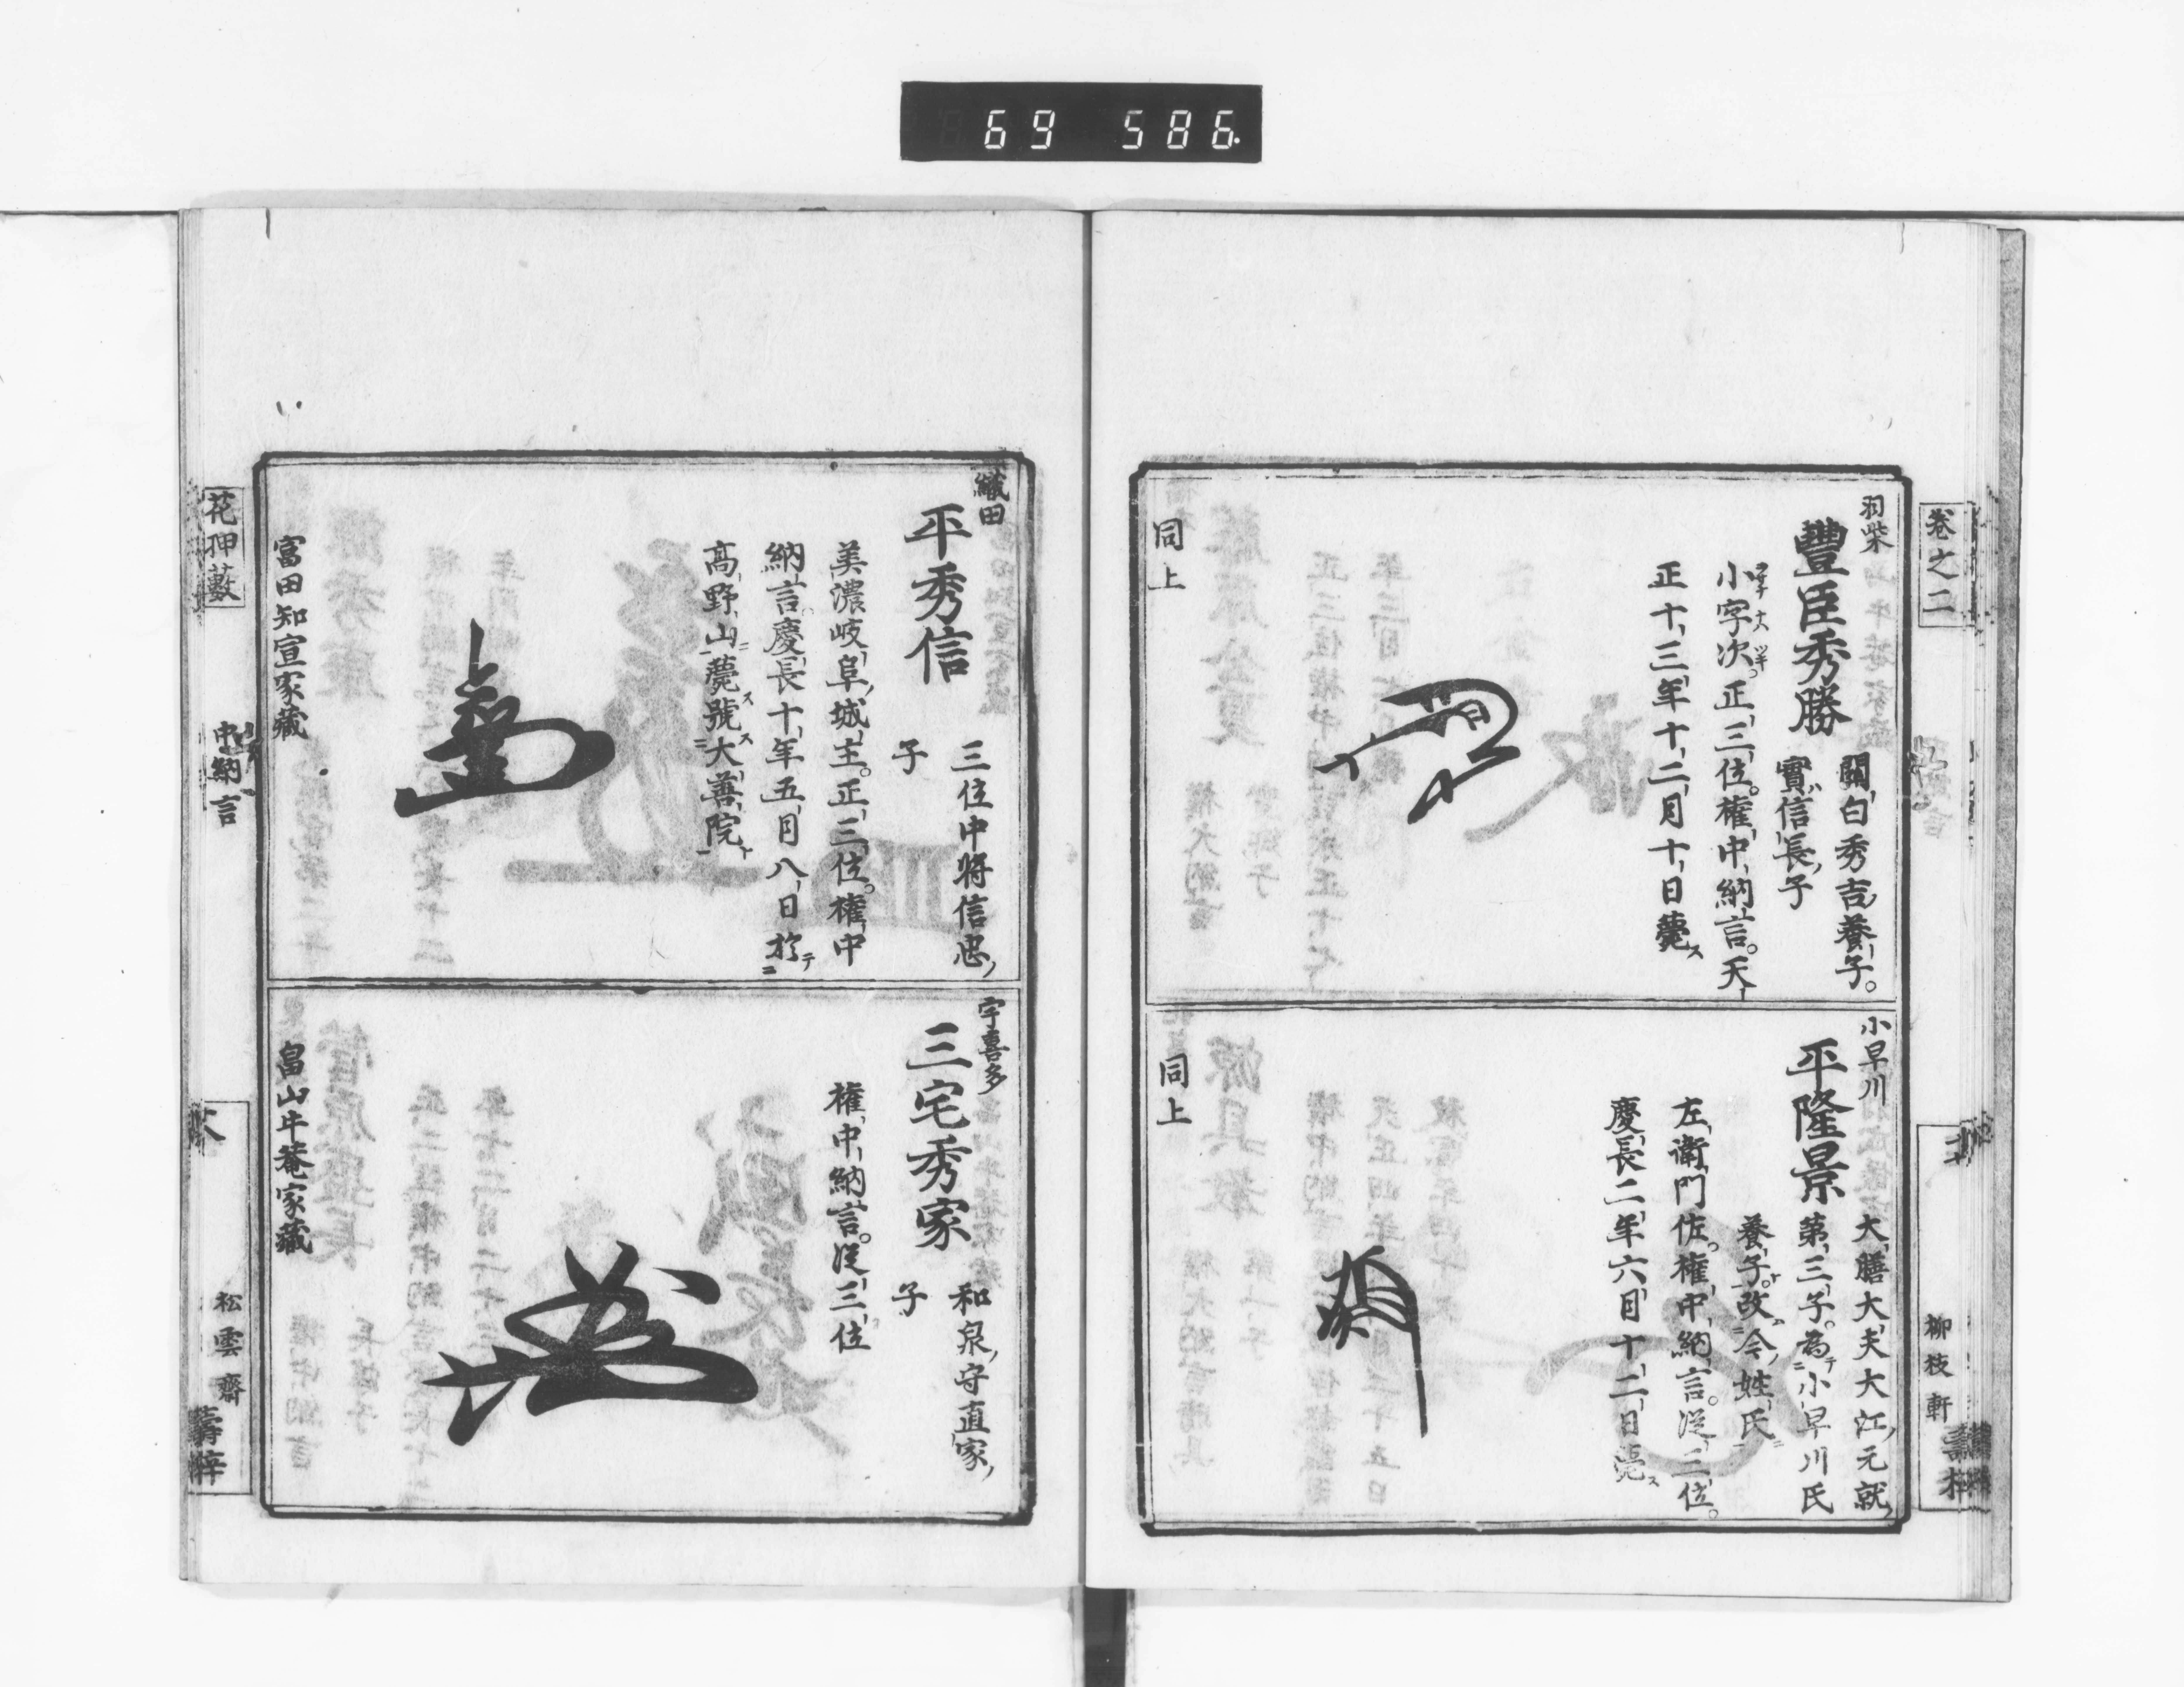 69 586
卷之二
柳枝軒
羽柴
豐臣秀勝
關白秀吉養子。
實信長子
小字次。正三位。權中納言。天
正十三年十二月十日薨ス
同上
小早川
平隆景
大膳大夫大江元就
第三子。為テ小早川氏
養子。改今姓氏
左衛門佐。權中納言。從三位。
慶長二年六月十二日薨ス
同上
織田
平秀信
三位中將信忠
子
美濃岐阜城主。正三位。權中
納言。慶長十年五月八日於テ
高野山薨ス號ス大善院
富田知宣家藏
宇喜多
三宅秀家
和泉守直家
子
權中納言。從三位
畠山牛菴家藏
花押藪
中納言
松雲齋